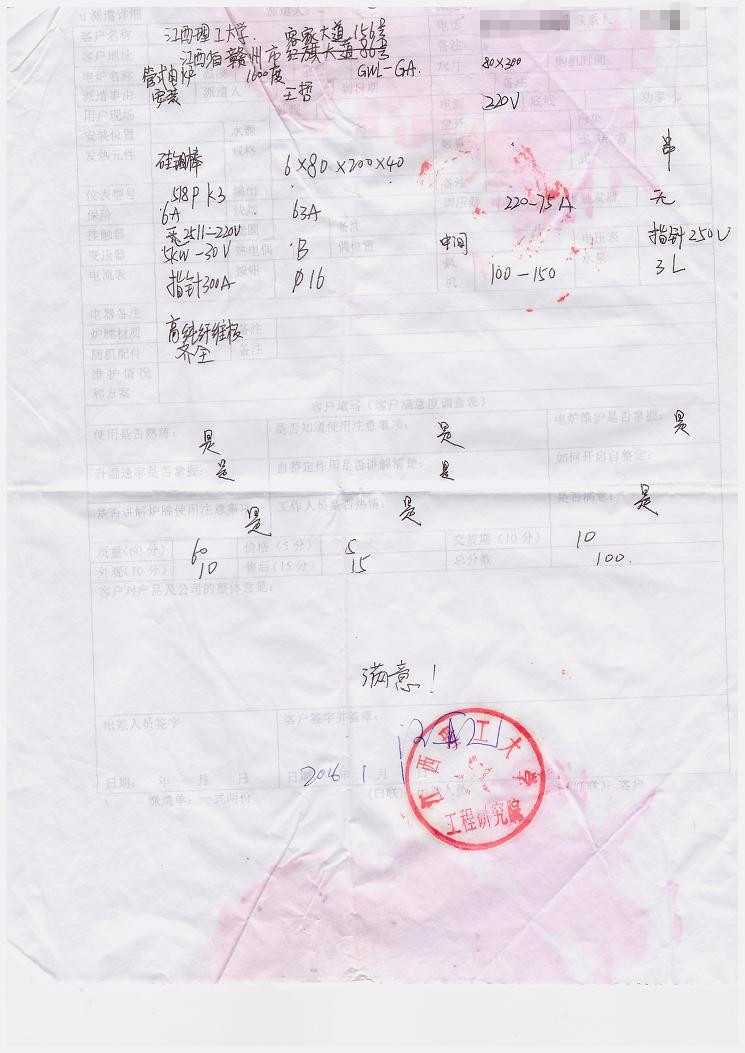 派遣详细 派遣人：
客户名称 江西理工大学. 客家大道156号 电话 联系人
客户地址 江西省赣州市红旗大道86号 备注
电炉名称 管式电炉 1600度 GWL-GA. 尺寸 80×300 购机时间
派遣事由 安装 派遣人 王哲 到日期 备注
用户现场 电源 220V 底线 功率
安装位置 水源
发热元件 硅钼棒 规格 6×80×200×40 串
仪表型号 518P K3 输出 备注
保险 6A 快熔 63A 调压器 220-75A 触发器 无
接触器 2511-220V 备注
变压器 5KW-30V 热电偶 B 偶位置 中间 电压表 指针250V
电流表 指针300A 按钮 φ16 机 100-150 水泵 3L
电器备注
炉膛材质 高纯纤维板 备注
随机配件 齐全 备注
维护情况
和方案
客户填写（客户满意度调查表）
使用是否熟练： 是 是否知道使用注意事项： 是 电炉维护是否掌握： 是
升温速率是否掌握： 是 自整定作用是否讲解清楚： 是 如何开启自整定：
是否讲解炉膛使用注意事项 是 工作人员是否热情： 是 是否满意： 是
质量(60分) 60 价格(5分) 5 交货期(10分) 10
外观(10分) 10 售后(15分) 15 总分数 100.
客户对产品及公司的整体意见：
满意！
出差人员签字 客户签字并盖章：
江西理工大学
工程研究院
日期： 年 月 日 日期 2016 年 1 月 日
派遣单：一式两份 (白联)： 出差人员 (红联)：客户